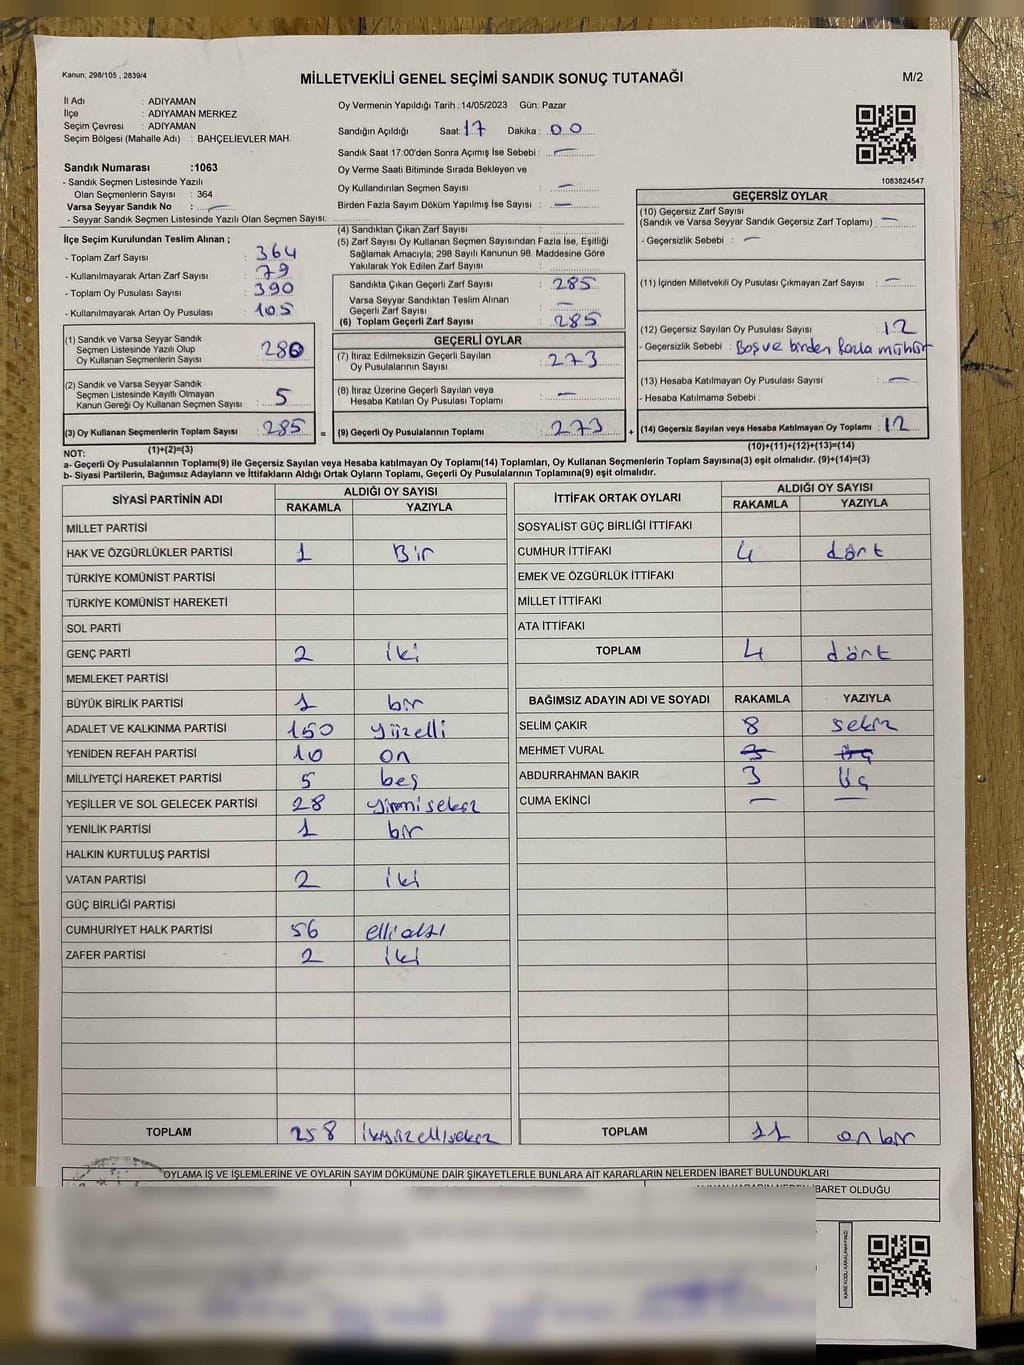 Kanun; 298/105 , 2839/4
MİLLETVEKİLİ GENEL SEÇİMİ SANDIK SONUÇ TUTANAĞI
M/2
İl Adı : ADIYAMAN
İlçe : ADIYAMAN MERKEZ
Seçim Çevresi : ADIYAMAN
Seçim Bölgesi (Mahalle Adı) : BAHÇELİEVLER MAH.
Oy Vermenin Yapıldığı Tarih :14/05/2023 Gün: Pazar
Sandığın Açıldığı Saat: 17 Dakika : 00
Sandık Saat 17:00'den Sonra Açımış İse Sebebi : —
Oy Verme Saati Bitiminde Sırada Bekleyen ve
Oy Kullandırılan Seçmen Sayısı : —
Birden Fazla Sayım Döküm Yapılmış İse Sayısı : —
1083824547
Sandık Numarası :1063
- Sandık Seçmen Listesinde Yazılı
Olan Seçmenlerin Sayısı : 364
Varsa Seyyar Sandık No : —
- Seyyar Sandık Seçmen Listesinde Yazılı Olan Seçmen Sayısı:
İlçe Seçim Kurulundan Teslim Alınan ;
- Toplam Zarf Sayısı : 364
- Kullanılmayarak Artan Zarf Sayısı : 79
- Toplam Oy Pusulası Sayısı : 390
- Kullanılmayarak Artan Oy Pusulası : 105
(1) Sandık ve Varsa Seyyar Sandık
Seçmen Listesinde Yazılı Olup
Oy Kullanan Seçmenlerin Sayısı : 280
(2) Sandık ve Varsa Seyyar Sandık
Seçmen Listesinde Kayıtlı Olmayan
Kanun Gereği Oy Kullanan Seçmen Sayısı : 5
(3) Oy Kullanan Seçmenlerin Toplam Sayısı : 285 =
(1)+(2)=(3)
(4) Sandıktan Çıkan Zarf Sayısı :
(5) Zarf Sayısı Oy Kullanan Seçmen Sayısından Fazla İse, Eşitliği
Sağlamak Amacıyla; 298 Sayılı Kanunun 98. Maddesine Göre
Yakılarak Yok Edilen Zarf Sayısı :
Sandıkta Çıkan Geçerli Zarf Sayısı : 285
Varsa Seyyar Sandıktan Teslim Alınan
Geçerli Zarf Sayısı : —
(6) Toplam Geçerli Zarf Sayısı : 285
GEÇERLİ OYLAR
(7) İtiraz Edilmeksizin Geçerli Sayılan
Oy Pusulasının Sayısı : 273
(8) İtiraz Üzerine Geçerli Sayılan veya
Hesaba Katılan Oy Pusulası Toplamı : —
(9) Geçerli Oy Pusulalarının Toplamı : 273 +
GEÇERSİZ OYLAR
(10) Geçersiz Zarf Sayısı
(Sandık ve Varsa Seyyar Sandık Geçersiz Zarf Toplamı) : —
- Geçersizlik Sebebi : —
(11) İçinden Milletvekili Oy Pusulası Çıkmayan Zarf Sayısı : —
(12) Geçersiz Sayılan Oy Pusulası Sayısı : 12
- Geçersizlik Sebebi : Boş ve birden fazla mühür
(13) Hesaba Katılmayan Oy Pusulası Sayısı : —
- Hesaba Katılmama Sebebi :
(14) Geçersiz Sayılan veya Hesaba Katılmayan Oy Toplamı : 12
(10)+(11)+(12)+(13)=(14)
NOT:
a- Geçerli Oy Pusulalarının Toplamı(9) ile Geçersiz Sayılan veya Hesaba katılmayan Oy Toplamı(14) Toplamları, Oy Kullanan Seçmenlerin Toplam Sayısına(3) eşit olmalıdır. (9)+(14)=(3)
b- Siyasi Partilerin, Bağımsız Adayların ve İttifakların Aldığı Ortak Oyların Toplamı, Geçerli Oy Pusulalarının Toplamına(9) eşit olmalıdır.
SİYASİ PARTİNİN ADI ALDIĞI OY SAYISI
RAKAMLA YAZIYLA
MİLLET PARTİSİ
HAK VE ÖZGÜRLÜKLER PARTİSİ 1 Bir
TÜRKİYE KOMÜNİST PARTİSİ
TÜRKİYE KOMÜNİST HAREKETİ
SOL PARTİ
GENÇ PARTİ 2 iki
MEMLEKET PARTİSİ
BÜYÜK BİRLİK PARTİSİ 1 bir
ADALET VE KALKINMA PARTİSİ 150 yüzelli
YENİDEN REFAH PARTİSİ 10 on
MİLLİYETÇİ HAREKET PARTİSİ 5 beş
YEŞİLLER VE SOL GELECEK PARTİSİ 28 yirmi sekiz
YENİLİK PARTİSİ 1 bir
HALKIN KURTULUŞ PARTİSİ
VATAN PARTİSİ 2 iki
GÜÇ BİRLİĞİ PARTİSİ
CUMHURİYET HALK PARTİSİ 56 elli altı
ZAFER PARTİSİ 2 iki
TOPLAM 258 ikiyüzellisekiz
İTTİFAK ORTAK OYLARI ALDIĞI OY SAYISI
RAKAMLA YAZIYLA
SOSYALİST GÜÇ BİRLİĞİ İTTİFAKI
CUMHUR İTTİFAKI 4 dört
EMEK VE ÖZGÜRLÜK İTTİFAKI
MİLLET İTTİFAKI
ATA İTTİFAKI
TOPLAM 4 dört
BAĞIMSIZ ADAYIN ADI VE SOYADI RAKAMLA YAZIYLA
SELİM ÇAKIR 8 sekiz
MEHMET VURAL 3 üç
ABDURRAHMAN BAKIR 3 Üç
CUMA EKİNCİ — —
TOPLAM 11 on bir
OYLAMA İŞ VE İŞLEMLERİNE VE OYLARIN SAYIM DÖKÜMÜNE DAİR ŞİKAYETLERLE BUNLARA AİT KARARLARIN NELERDEN İBARET BULUNDUKLARI
İBARET OLDUĞU
KARE KODU KARALAMAYINIZ!